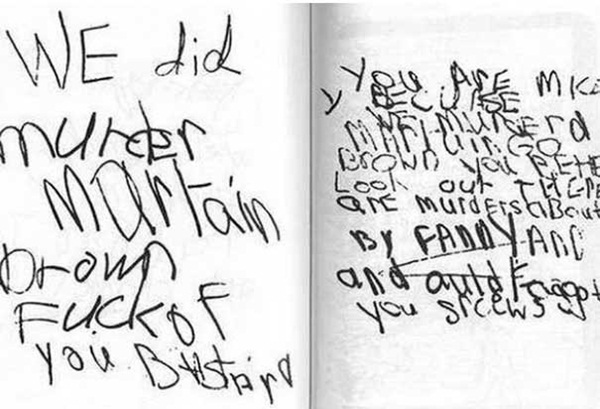 WE did
murder
martain
brown
Fuckof
you BAstArd
YOU ArE micE
y BECUrSE
WE murdErd
martain GO
Brown you BEttEr
Look out THErE
arE murdErs aBout
By FANNYAND
and auld Faggot
you srcews